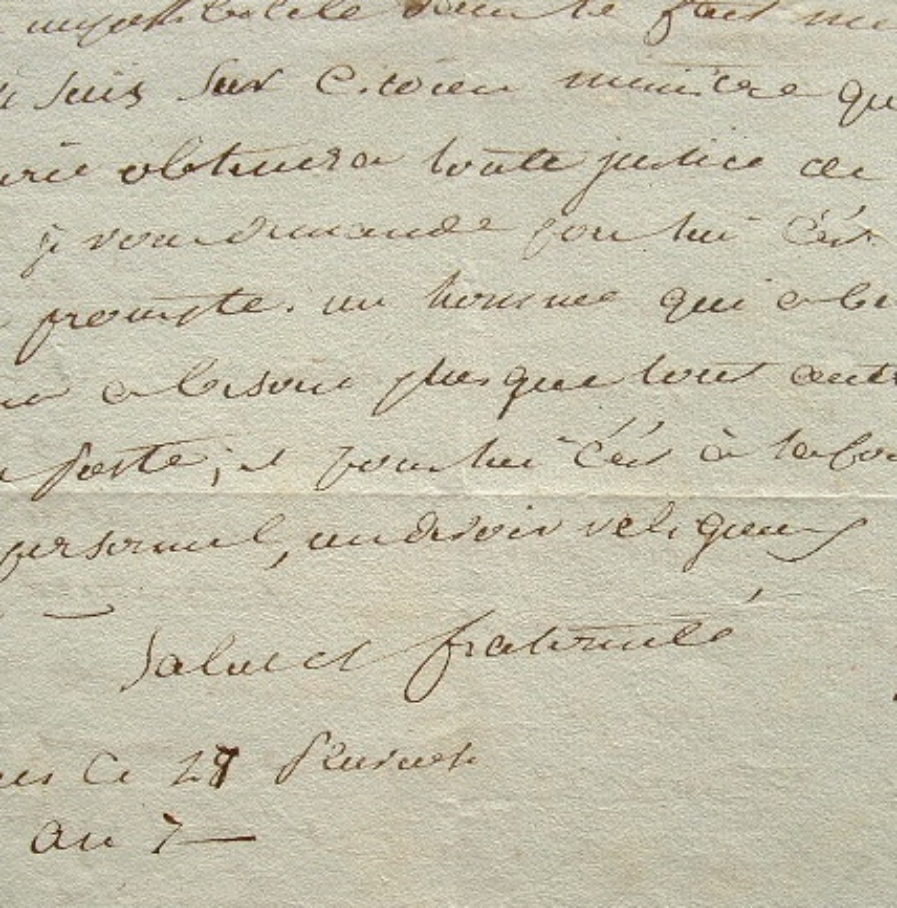 impossibilité dans le fait
suis sur citoien ministre que
obtiendra toute justice de
je vous demande pour lui c'ést
prompte. un homme qui a be
a besoin plus que tout autr
perte; et pour lui c'ést à la foi
personnel, un devoir religieux
Salut et fraternité
ce 28 Pluviose
an 7